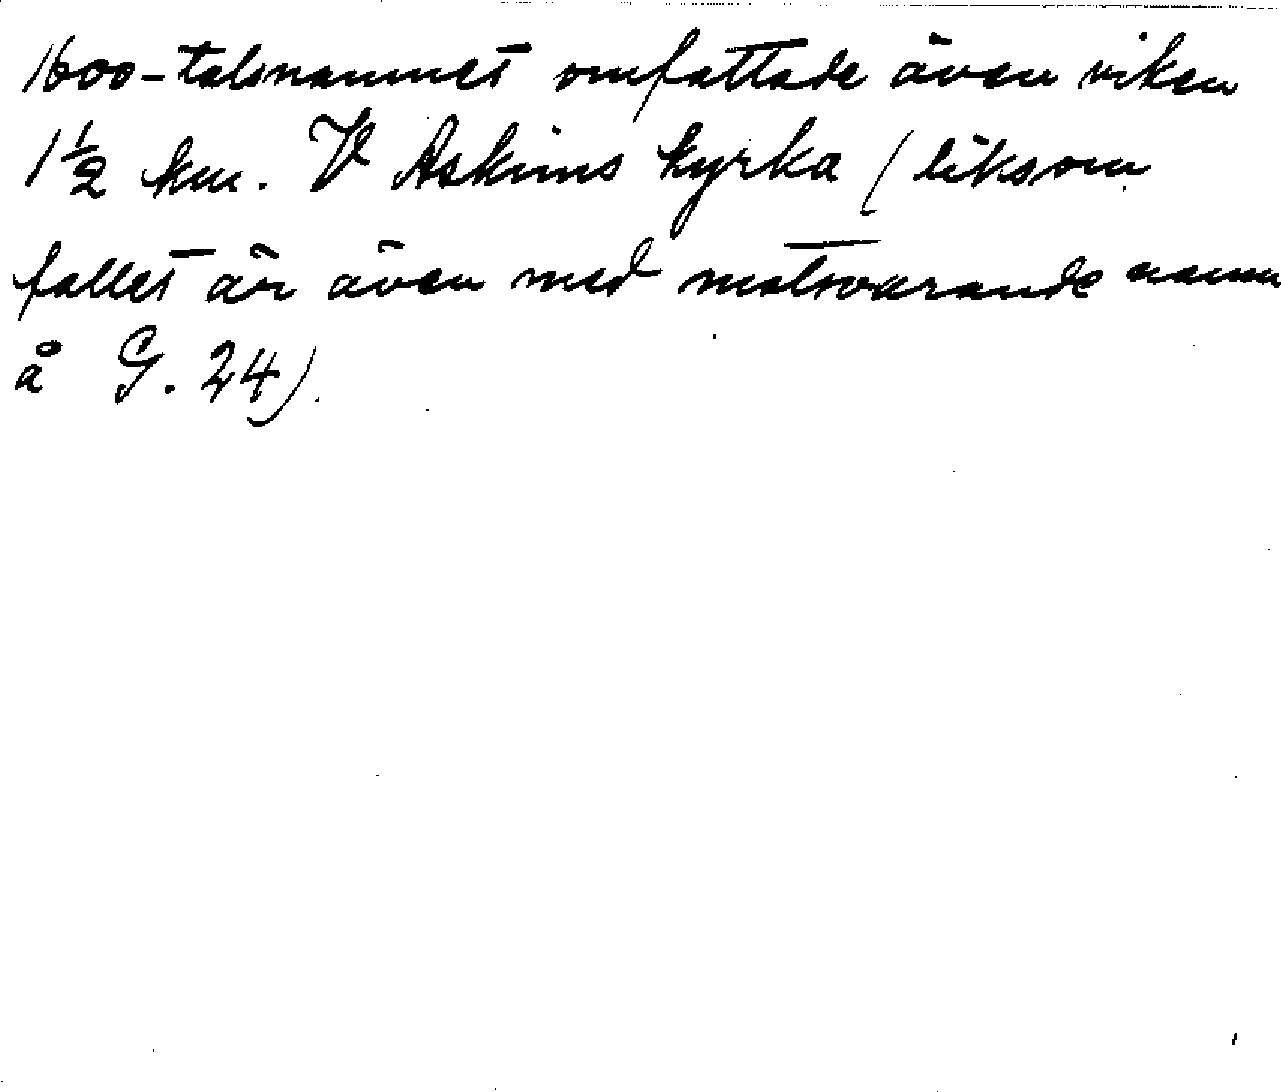 1600-talsnamnet omfattade även viken
1½ km. V Askims kyrka (liksom
fallet är även med motsvarande namn
å G. 24).